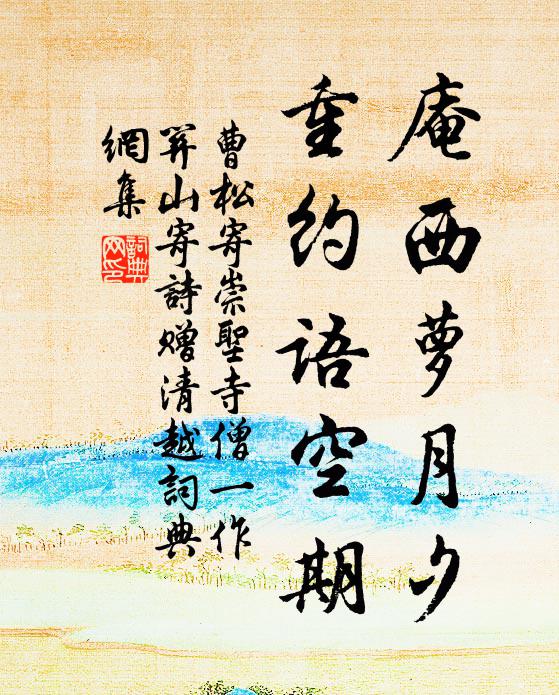 庵西萝月夕
重約語空期
曹松寄崇聖寺僧一作
羿山寄詩贈清越詞典
網集
詞典
网印